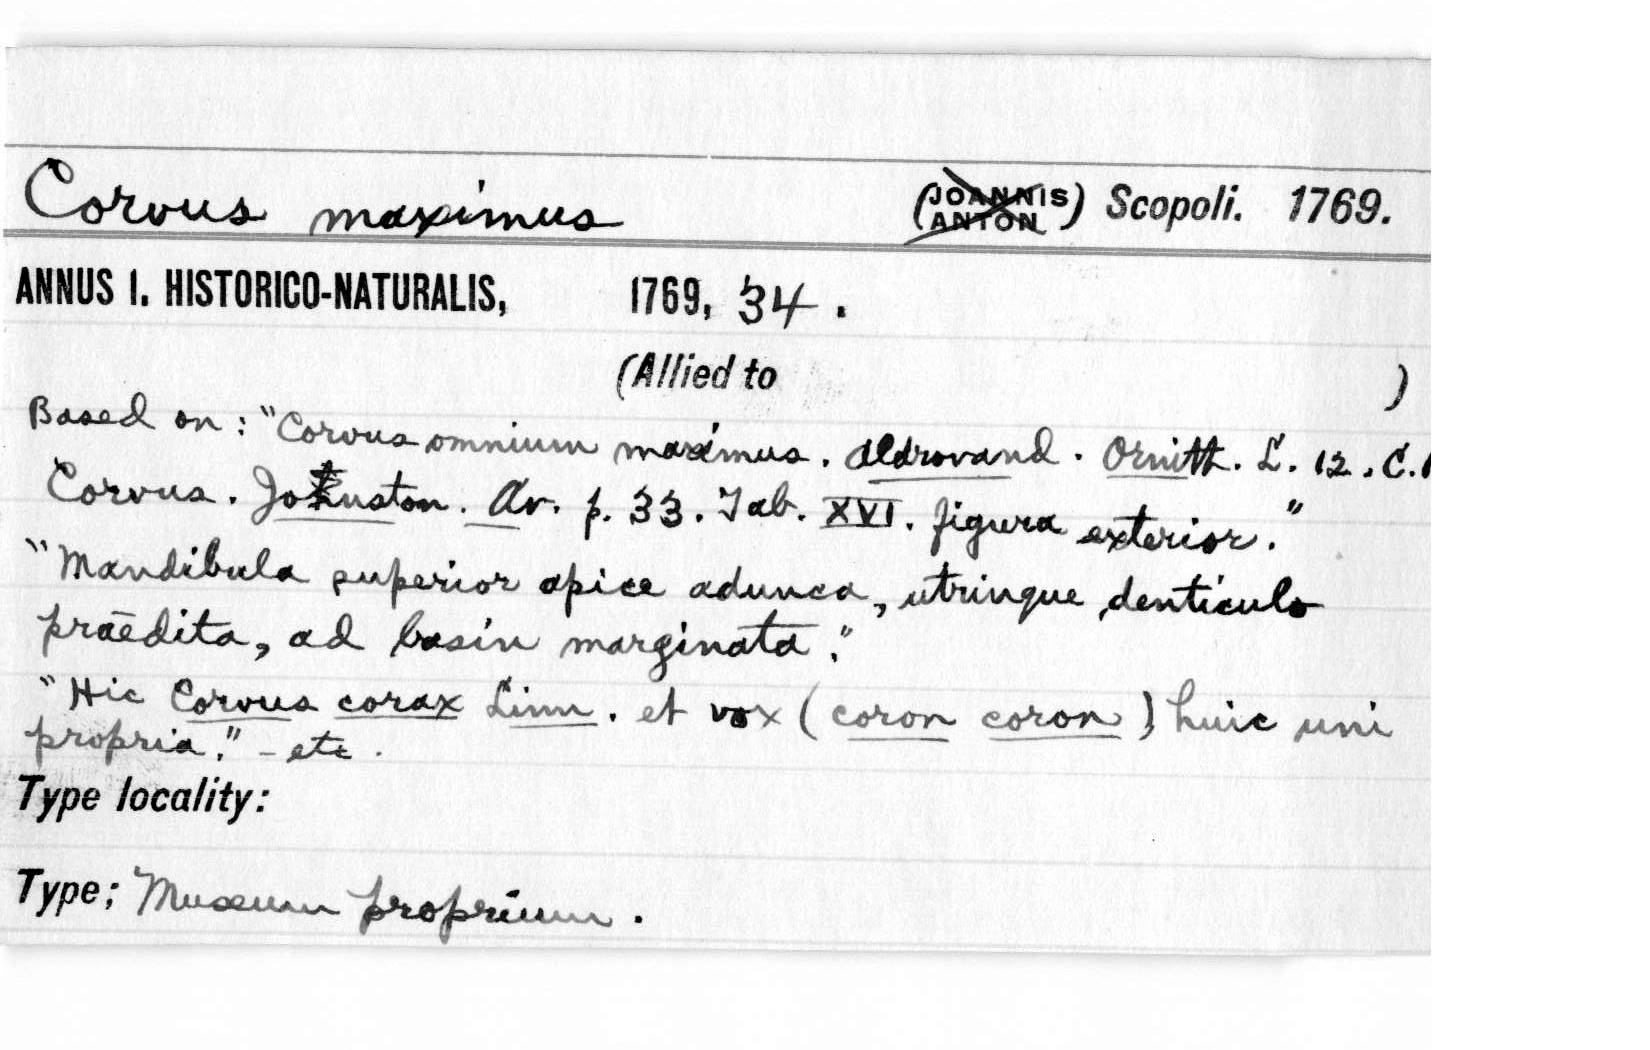 Corvus maximus (JOANNIS ANTON) Scopoli. 1769.
ANNUS I. HISTORICO-NATURALIS, 1769, 34.
(Allied to )
Based on: "Corvus omnium maximus. Aldrovand. Ornith. L. 12. C.
Corvus. Johnston. Av. p. 33. Tab. XVI. figura exterior."
"Mandibula superior apice adunca, utrinque denticulo
praedita, ad basin marginata."
"Hic Corvus corax Linn. et vox (coron coron) huic uni
propria." - etc.
Type locality:
Type; Museum proprium.